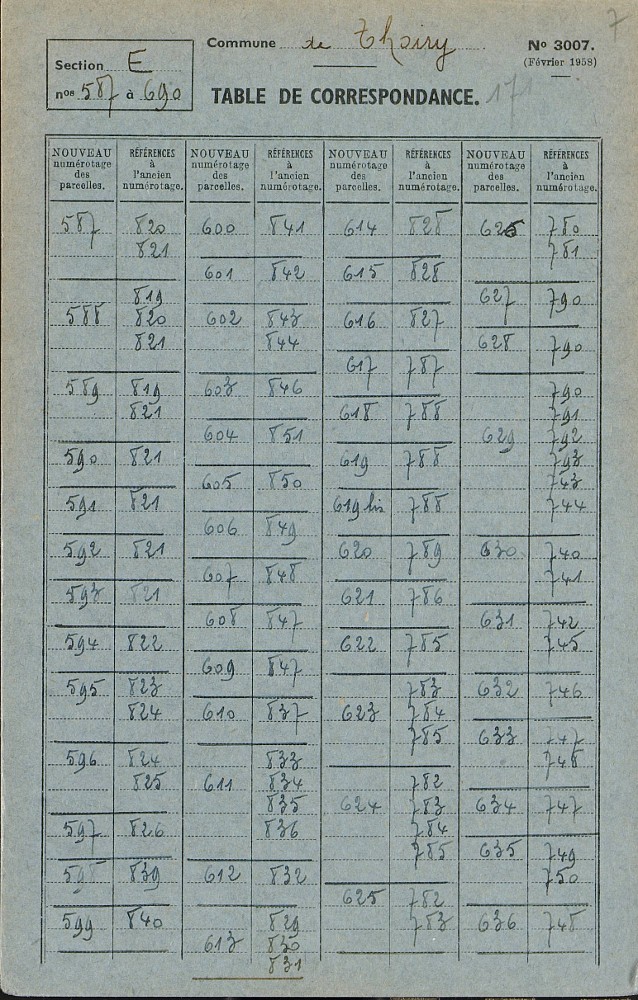 7
Section E
nos 587 à 690
Commune de Thoiry
No 3007.
(Février 1958)
TABLE DE CORRESPONDANCE. 171
NOUVEAU numérotage des parcelles. RÉFÉRENCES à l'ancien numérotage. NOUVEAU numérotage des parcelles. RÉFÉRENCES à l'ancien numérotage. NOUVEAU numérotage des parcelles. RÉFÉRENCES à l'ancien numérotage. NOUVEAU numérotage des parcelles. RÉFÉRENCES à l'ancien numérotage.
587 820
821
819
588 820
821
589 819
821
590 821
591 821
592 821
593 821
594 822
595 823
824
596 824
825
597 826
598 839
599 840
600 841
601 842
602 843
844
603 846
604 851
605 850
606 849
607 848
608 847
609 847
610 837
833
611 834
835
836
612 832
829
613 830
831
614 828
615 828
616 827
617 787
618 788
619 788
619 bis 788
620 789
621 786
622 785
783
623 784
785
782
624 783
784
785
625 782
783
626 780
781
627 790
628 790
790
791
629 792
793
743
744
630 740
741
631 742
745
632 746
633
748
634 747
635 749
750
636 748